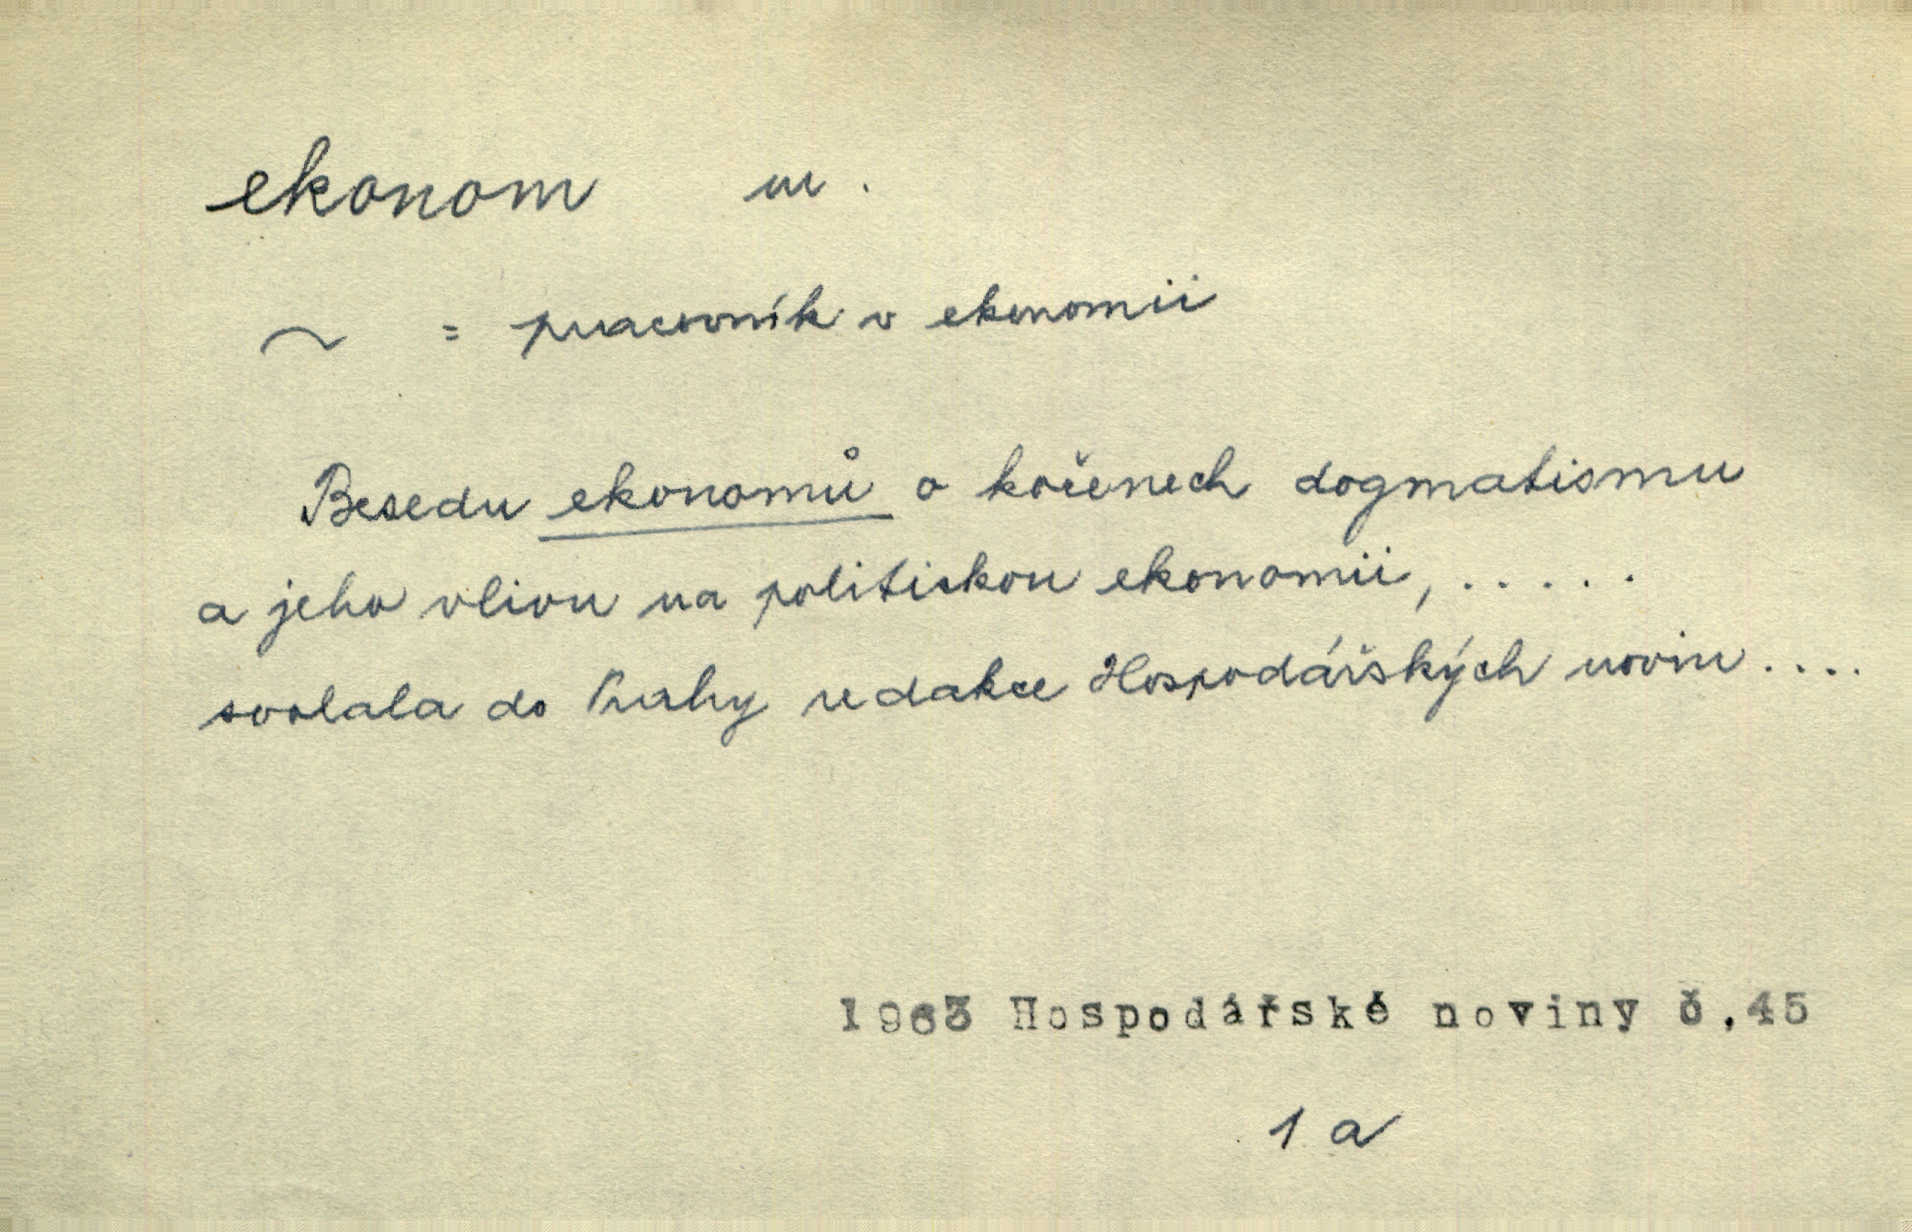 ekonom m.
~ = pracovník v ekonomii
Besedu ekonomů o kořenech dogmatismu
a jeho vlivu na politickou ekonomii, .....
svolala do Prahy redakce Hospodářských novin ....
1963 Hospodářské noviny č.45
1 a